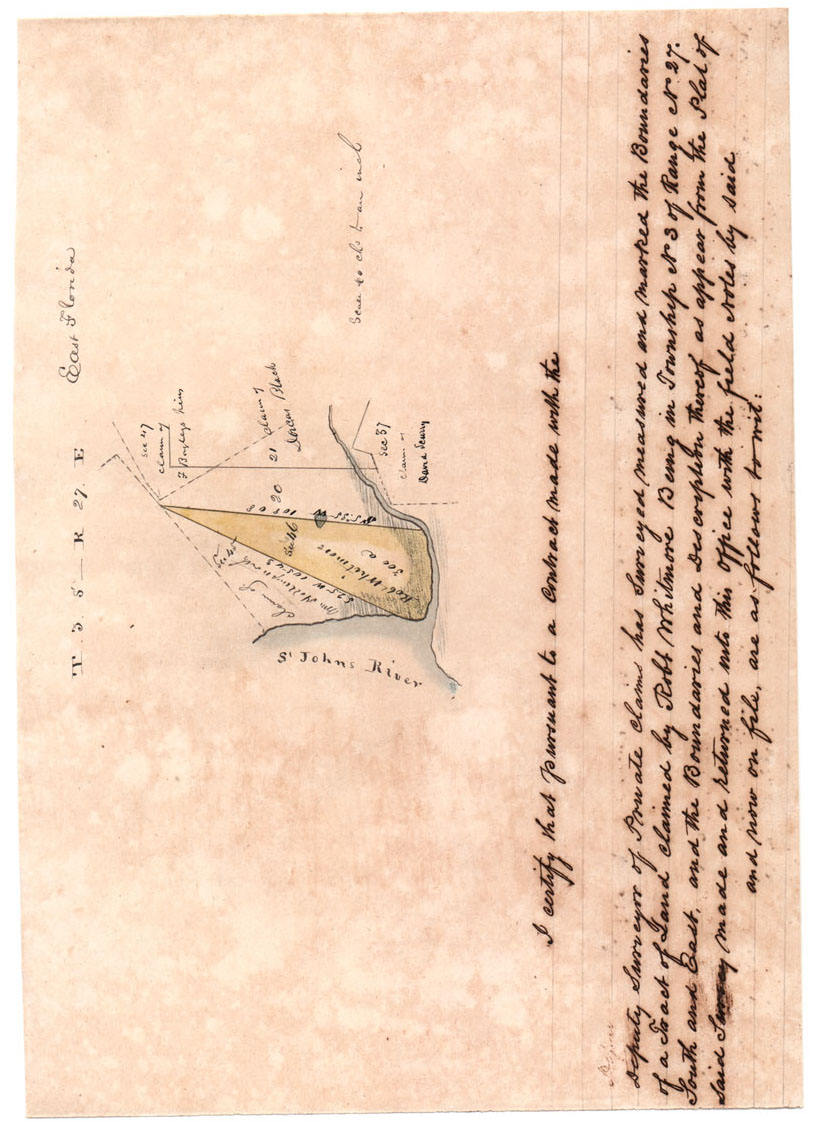 T 3 S — R 27. E East Florida
Sec 47
claim of
F Bagleys heirs
claim of
Dorcas Black
21
20
Sec 46
Robt Whitmore
300 a
Sec 45
claim of
S 25 W 105.43
Sec 37
claim of
David Scurry
St Johns River
Scale 40 chs to an inch
I certify that pursuant to a contract made with the
Deputy Surveyor of Private Claims has Surveyed measured and marked the Boundaries
of a Tract of Land claimed by Robt Whitmore Being in Township No 3 of Range No 27.
South and East, and the Boundaries and Description thereof as appear from the Plat of
said Survey made and returned into this Office with the field Notes by said
and now on file, are as follows to wit: